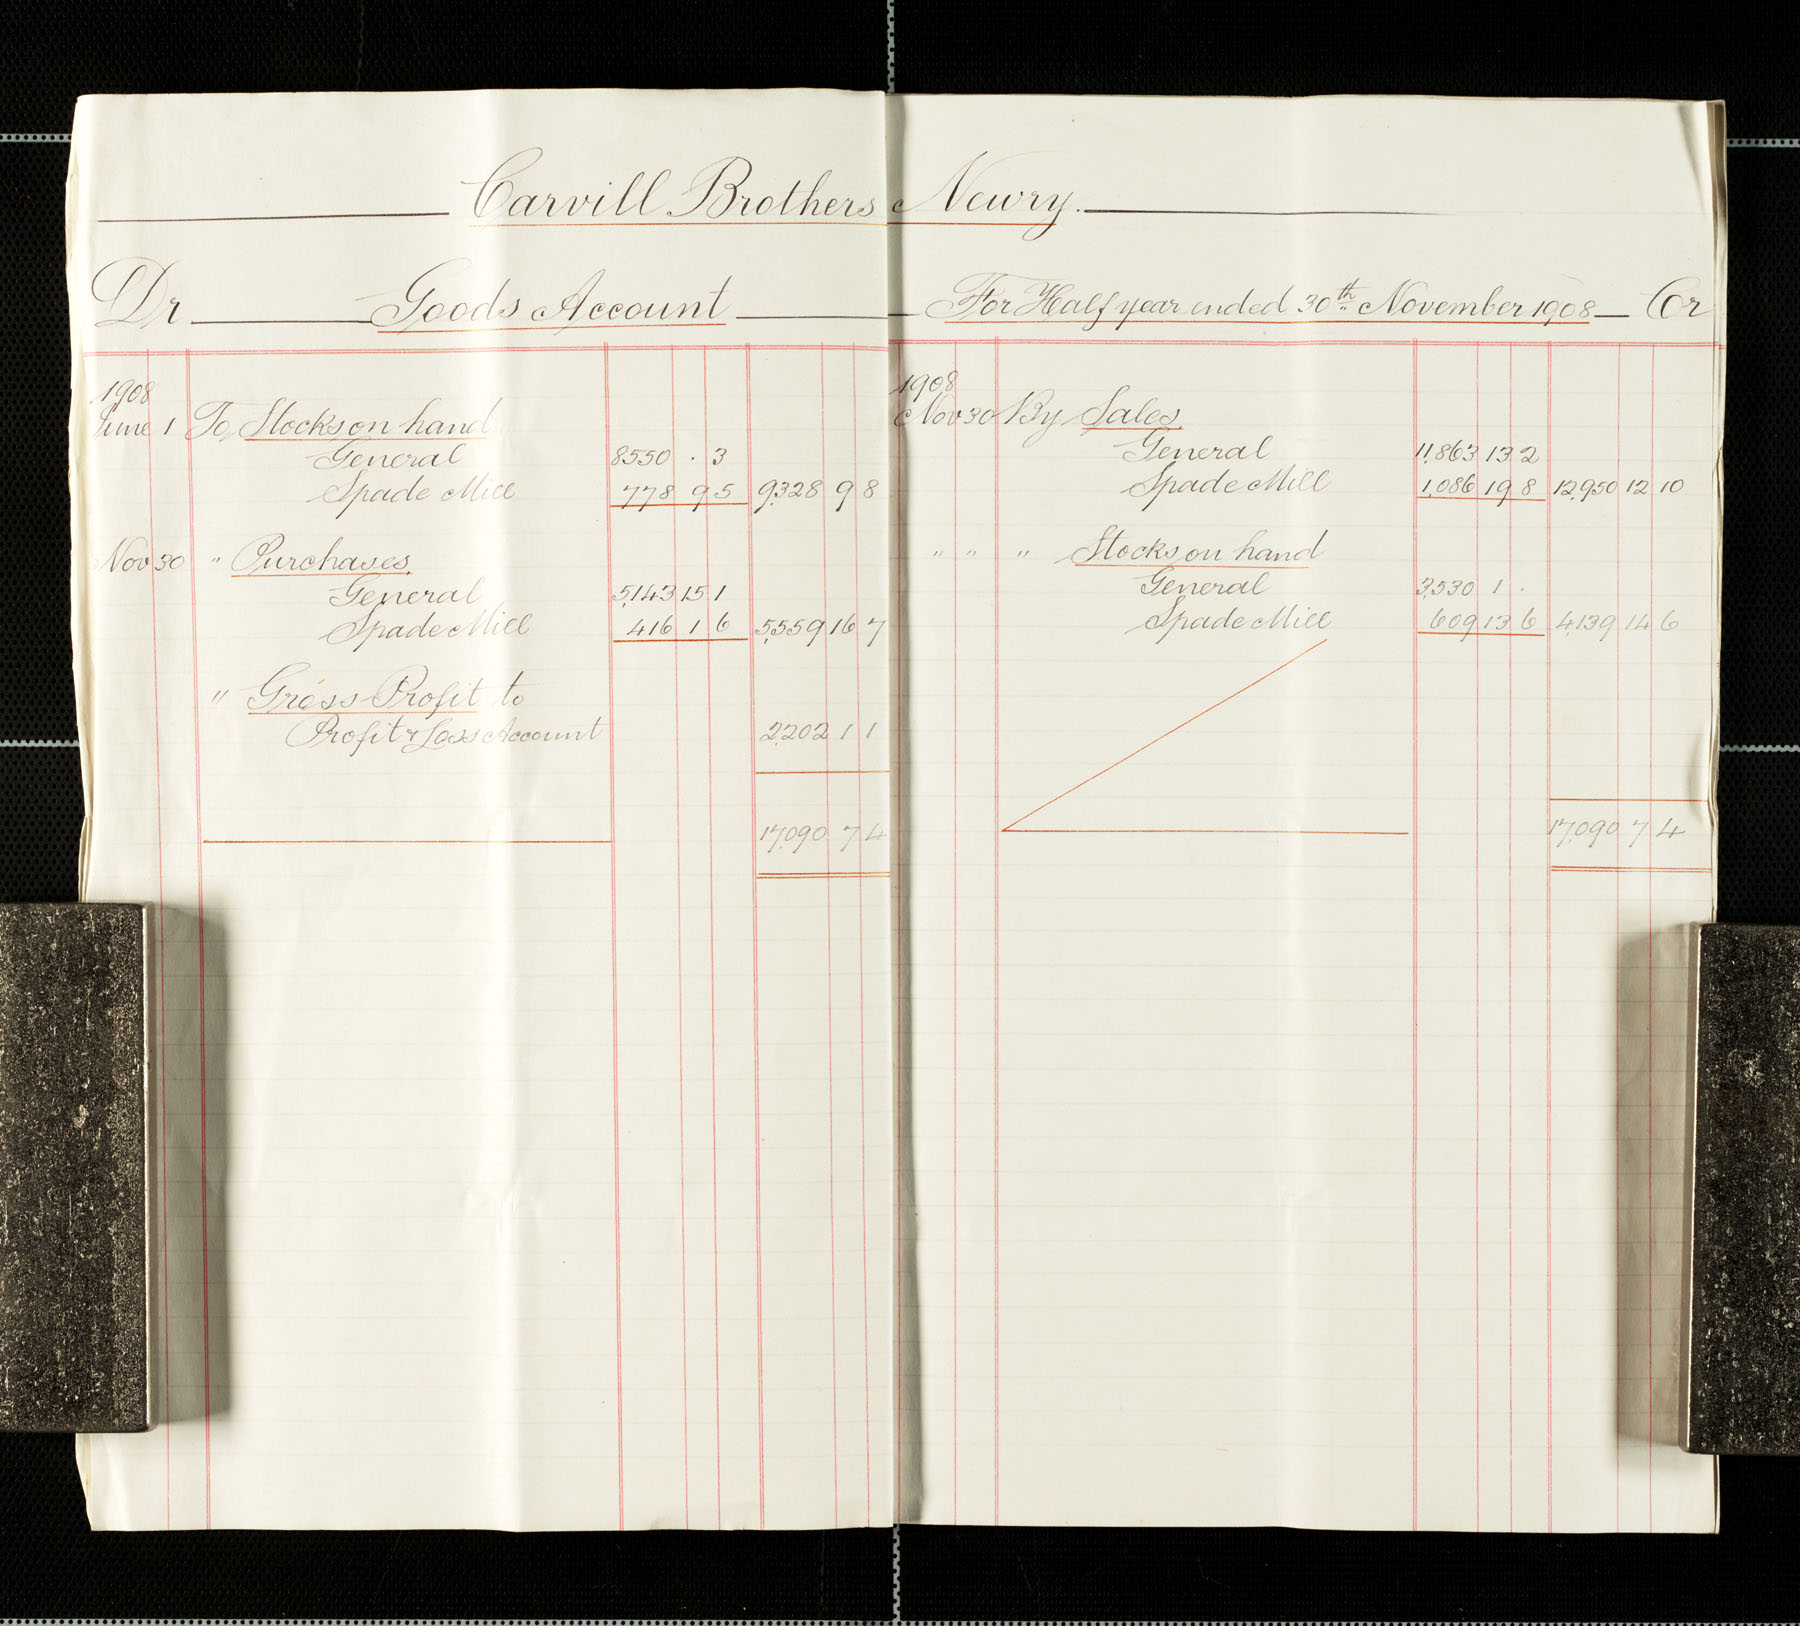 Carvill Brothers Newry.
Dr Goods Account For Half year ended 30th November 1908 Cr
1908
June 1 To Stocks on hand
General 8550 . 3
Spade Mill 778 9 5 9,328 9 8
Nov 30 " Purchases.
General 5,143 15 1
Spade Mill 416 1 6 5,559 16 7
" Gross Profit to
Profit & Loss Account 2,202 1 1
17,090 7 4
1908
Nov 30 By Sales.
General 11,863 13 2
Spade Mill 1,086 19 8 12,950 12 10
" " " Stocks on hand
General 3,530 1 .
Spade Mill 609 13 6 4,139 14 6
17,090 7 4